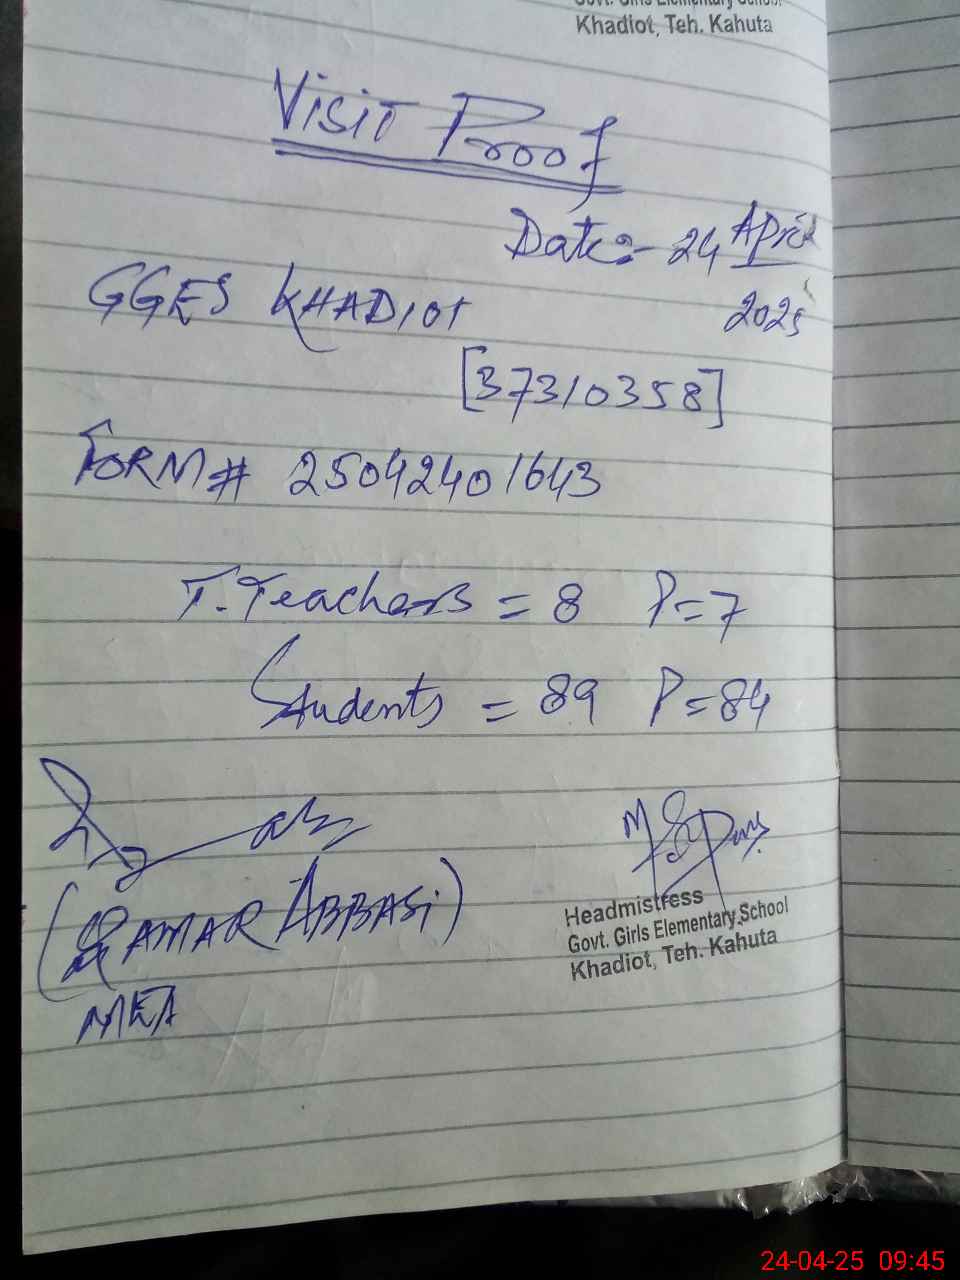 Govt. Girls Elementary School
Khadiot, Teh. Kahuta
Visit Proof
Date:- 24 April
2025
GGES KHADIOT
[37310358]
FORM# 25042401643
T. Teachers = 8 P=7
Students = 89 P=84
(QAMAR ABBASi)
MEA
Headmistress
Govt. Girls Elementary School
Khadiot, Teh. Kahuta
24-04-25 09:45